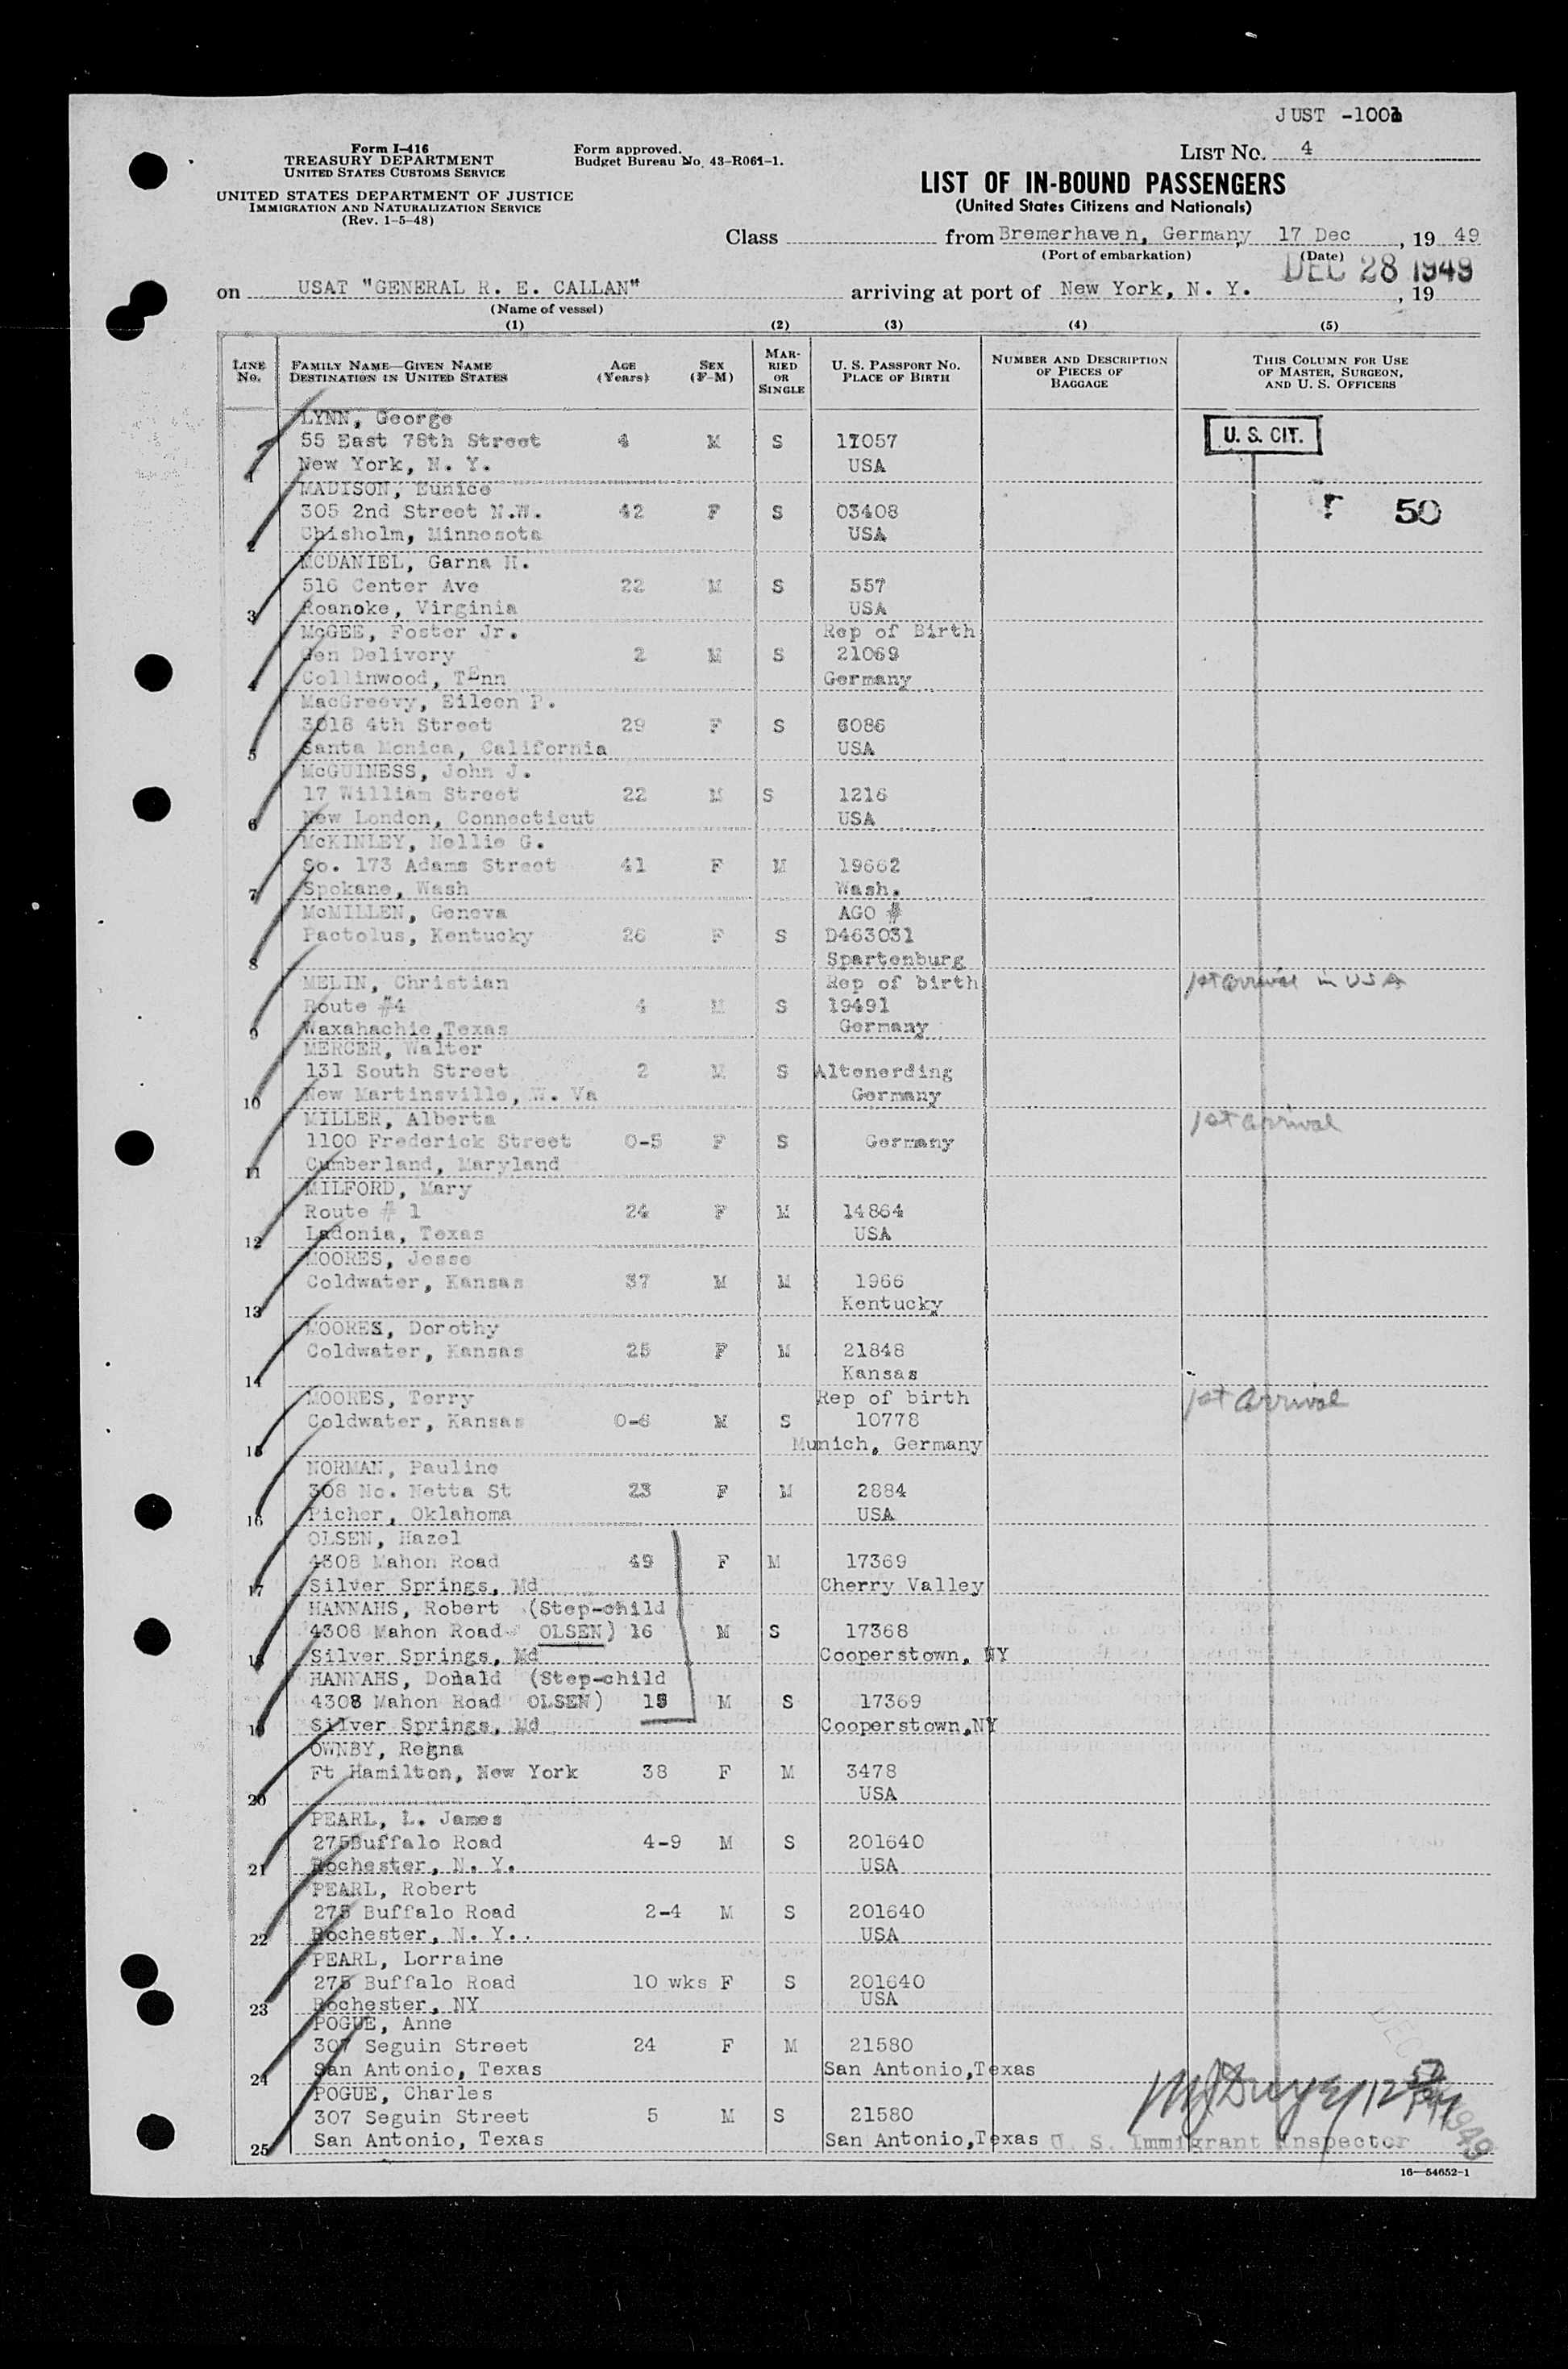 JUST -1001
Form I-416
TREASURY DEPARTMENT
UNITED STATES CUSTOMS SERVICE
UNITED STATES DEPARTMENT OF JUSTICE
IMMIGRATION AND NATURALIZATION SERVICE
(Rev. 1-5-48)
Form approved.
Budget Bureau No. 43-R061-1.
LIST No. 4
LIST OF IN-BOUND PASSENGERS
(United States Citizens and Nationals)
Class from Bremerhaven, Germany, 17 Dec, 19 49
(Port of embarkation) (Date)
DEC 28 1949
on USAT "GENERAL R. E. CALLAN" arriving at port of New York, N. Y. , 19
(Name of vessel)
(1) (2) (3) (4) (5)
LINE No. FAMILY NAME—GIVEN NAME DESTINATION IN UNITED STATES AGE (Years) SEX (F-M) MARRIED OR SINGLE U. S. PASSPORT NO. PLACE OF BIRTH NUMBER AND DESCRIPTION OF PIECES OF BAGGAGE THIS COLUMN FOR USE OF MASTER, SURGEON, AND U. S. OFFICERS
LYNN, George
55 East 78th Street 4 M S 17057 U. S. CIT.
1 New York, N. Y. USA
MADISON, Eunice
305 2nd Street N.W. 42 F S 03408 50
2 Chisholm, Minnesota USA
MCDANIEL, Garna H.
516 Center Ave 22 M S 557
3 Roanoke, Virginia USA
McGEE, Foster Jr. Rep of Birth
Gen Delivery 2 M S 21069
4 Collinwood, TEnn Germany
MacGreevy, Eileen P.
3018 4th Street 29 F S 6086
5 Santa Monica, California USA
McGUINESS, John J.
17 William Street 22 M S 1216
6 New London, Connecticut USA
McKINLEY, Nellie G.
So. 173 Adams Street 41 F M 19662
7 Spokane, Wash Wash.
McMILLEN, Geneva AGO #
Pactolus, Kentucky 26 F S D463031
8 Spartenburg
MELIN, Christian Rep of birth 1st arrival in USA
Route #4 4 M S 19491
9 Waxahachie,Texas Germany
MERCER, Walter
131 South Street 2 M S Altenerding
10 New Martinsville, W. Va Germany
MILLER, Alberta 1st arrival
1100 Frederick Street 0-5 F S Germany
11 Cumberland, Maryland
MILFORD, Mary
Route # 1 24 F M 14864
12 Ladonia, Texas USA
MOORES, Jesse
Coldwater, Kansas 37 M M 1966
13 Kentucky
MOORES, Dorothy
Coldwater, Kansas 25 F M 21848
14 Kansas
MOORES, Terry Rep of birth 1st arrival
Coldwater, Kansas 0-6 M S 10778
15 Munich, Germany
NORMAN, Pauline
308 No. Netta St 23 F M 2884
16 Picher, Oklahoma USA
OLSEN, Hazel
4308 Mahon Road 49 F M 17369
17 Silver Springs, Md Cherry Valley
HANNAHS, Robert (Step-child
4308 Mahon Road OLSEN) 16 M S 17368
18 Silver Springs, Md Cooperstown, NY
HANNAHS, Donald (Step-child
4308 Mahon Road OLSEN) 15 M S 17369
19 Silver Springs, Md Cooperstown,NY
OWNBY, Regna
Ft Hamilton, New York 38 F M 3478
20 USA
PEARL, L. James
275Buffalo Road 4-9 M S 201640
21 Rochester, N. Y. USA
PEARL, Robert
275 Buffalo Road 2-4 M S 201640
22 Rochester, N. Y. USA
PEARL, Lorraine
275 Buffalo Road 10 wks F S 201640
23 Rochester, NY USA
POGUE, Anne
307 Seguin Street 24 F M 21580
24 San Antonio, Texas San Antonio,Texas
POGUE, Charles
307 Seguin Street 5 M S 21580
25 San Antonio, Texas San Antonio,Texas U. S. Immigrant Inspector
16—54652-1